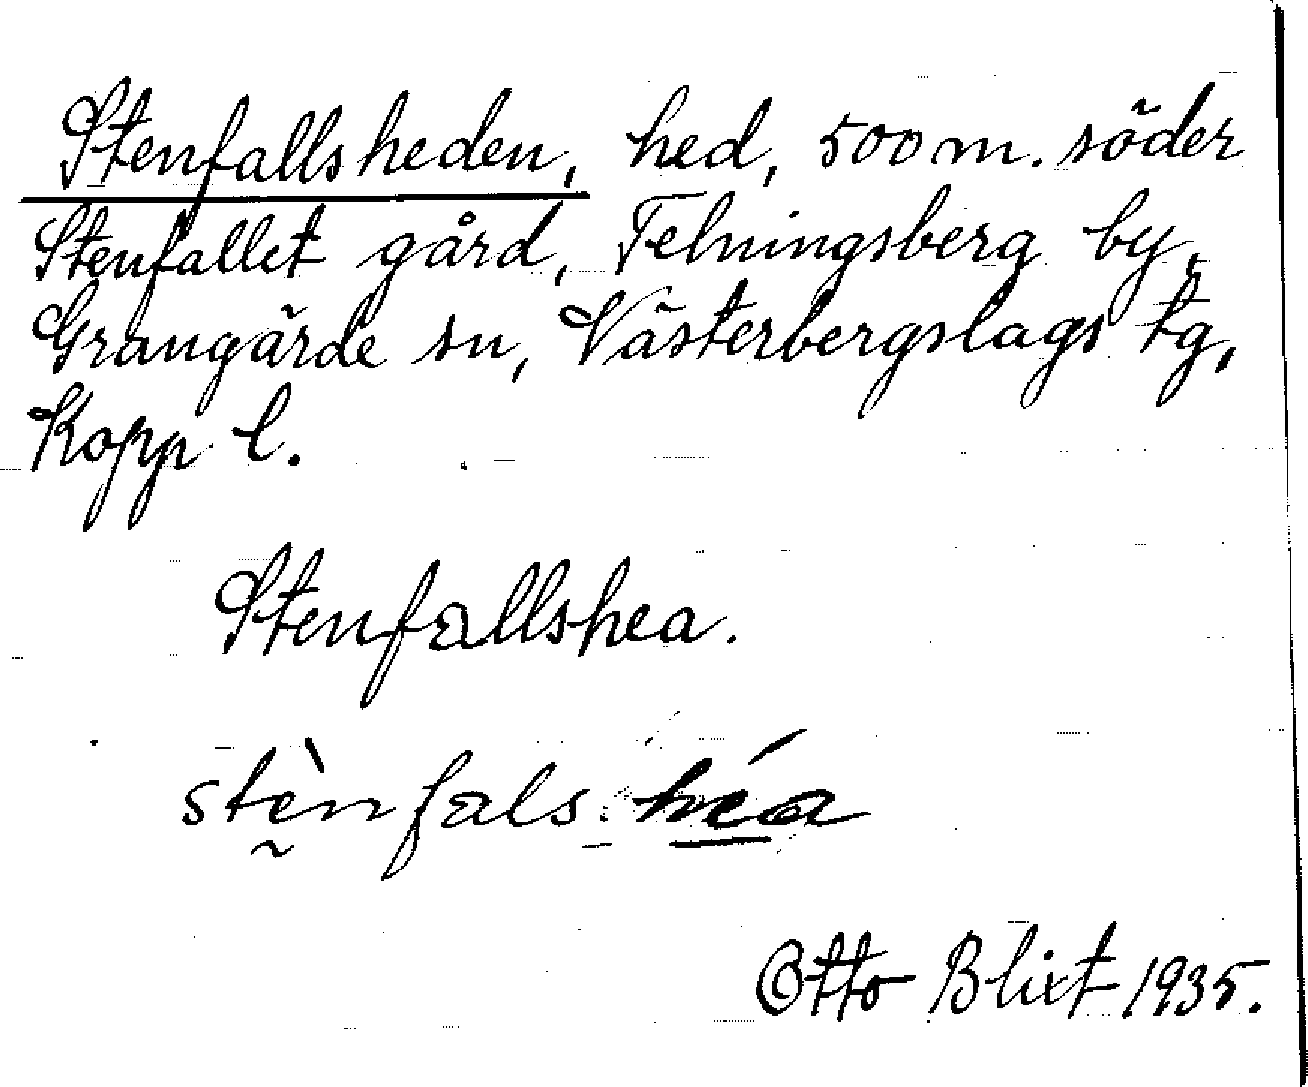 Stenfallsheden, hed, 500 m. söder
Stenfallet gård, Felningsberg by,
Grangärde sn, Västerbergslags tg,
Kopp l.
Stenfallshea.
stènfals héa
Otto Blixt 1935.